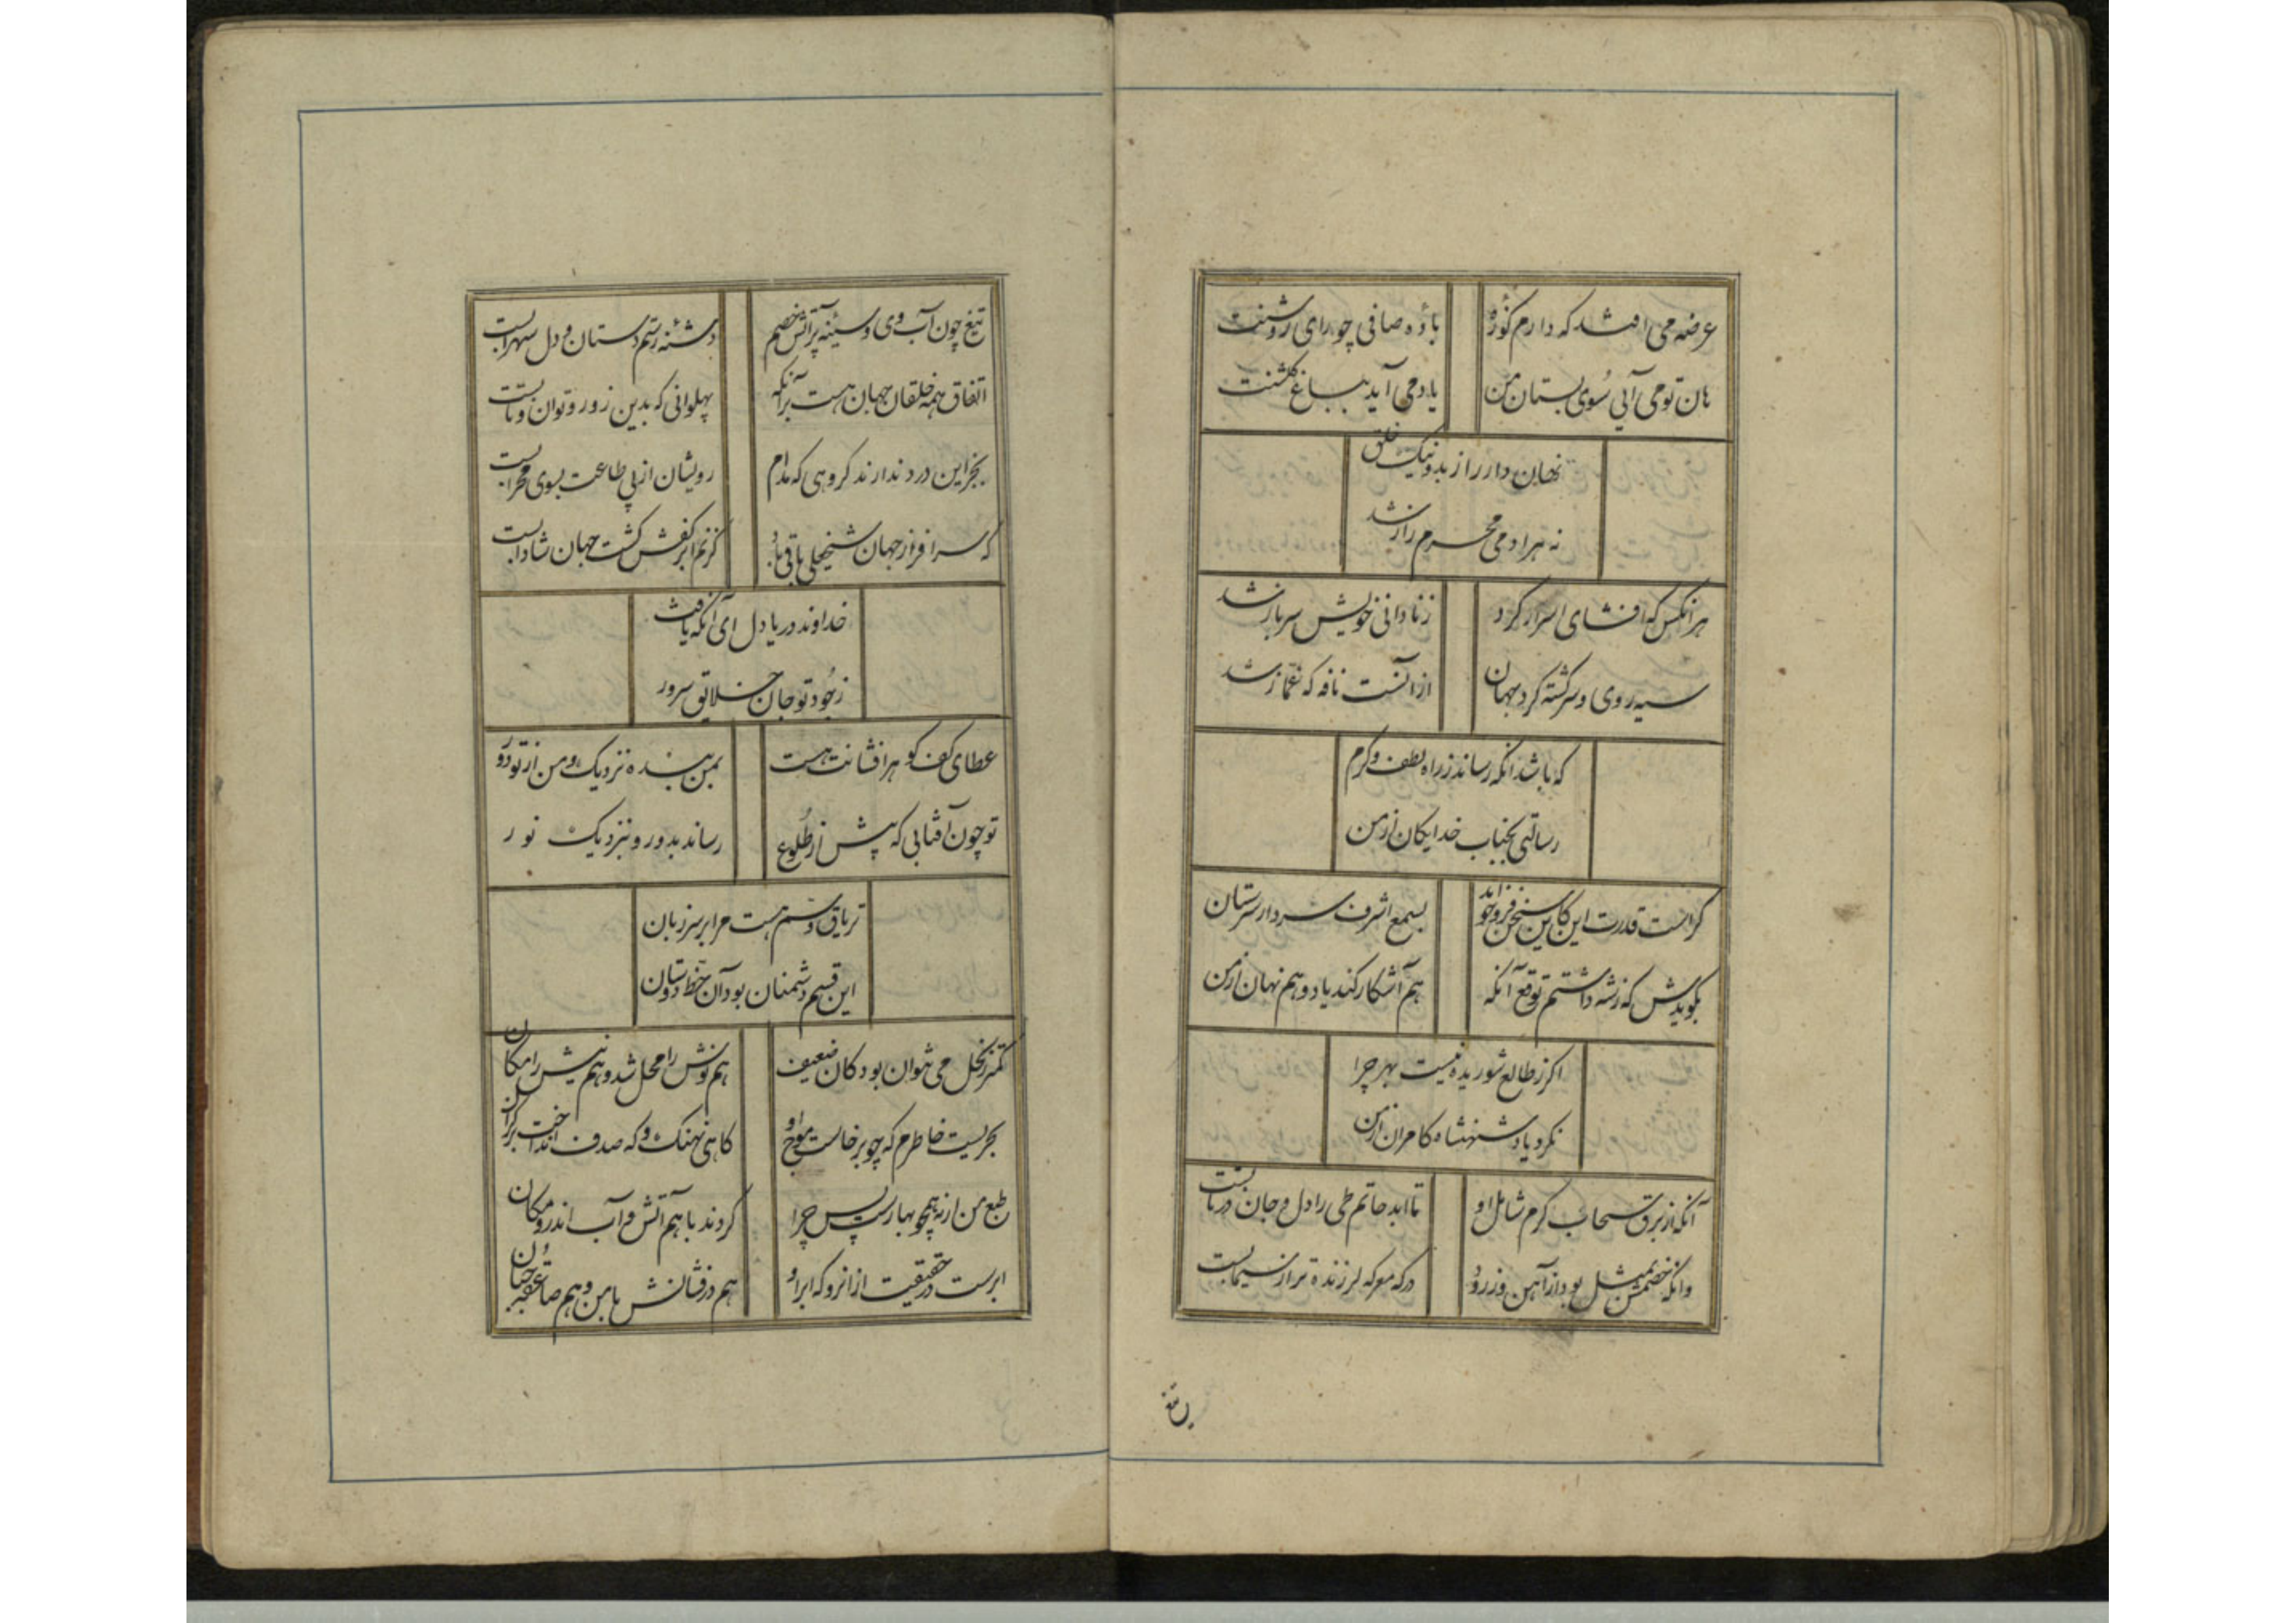 عرضه می افتد که دارم کوزهٔ
بادهٔ صافی چو رای روشنت
هان تو می آیی سوی بستان من
یا دمی آید بباغ گلشنت
نهان دار راز بد و نیک خلق
نه هر ادمی محرم راز شد
هر انکس که افشای اسرار کرد
ز نادانی خویش سرباز شد
سیه روی و سرکشته کرد بجهان
از انست نافه که غماز شد
که باشد انکه رساند ز راه لطف و کرم
رسالتی بجناب خدایکان از من
کر است قدرت این کاین سخن فرو خواند
بسمع اشرف سردار سرستان از من
بکویدش که ز شه داشتم توقع آنکه
هم آشکار کند یاد و هم نهان از من
اکر ز طالع شوریده نیست بهر چرا
نکرد یاد شهنشاه کامران از من
آنکه از برق سحاب کرم شامل او
تا ابد حاتم طی را دل و جان در تابست
وانکه خصمش بمثل بود از آهن وز رو
در که معرکه لرزنده تر از سیمابست
تیغ چون
تیغ چون آب وی و سینه پر آتش خصم
دشنه رستم دستان و دل سهرابست
اتفاق همه خلقان جهان هست بر آنکه
پهلوانی که بدین زور و توان و تابست
بجز این درد ندارند کروهی که مدام
رویشان از پی طاعت بسوی محرابست
که سرافراز جهان شیخعلی باقی باد
کز نم ابر کفش کشت جهان شادابست
خداوند دریا دل ای آنکه یافت
ز جود تو جان خلایق سرور
عطای کف کوهرافشانت هست
بمن بنده نزدیک و من از تو دور
تو چون آفتابی که پیش از طلوع
رساند بدور و بنزدیک نور
تریاق و سم هست مرا بر سر زبان
این قسم دشمنان بود آن حظ دوستان
کمتر ز نحل می نتوان بود کان ضعیف
هم نوش را محل شد و هم نیش را مکان
بحریست خاطرم که چو برخاست موج او
کاهی نهنک و که صدف انداخت بر کران
طبع من ار نه همچو بهارست پس چرا
کردند با هم آتش و آب اندرو مکان
ابرست در حقیقت از انرو که ابر او
هم درفشانش با من و هم صاعقه